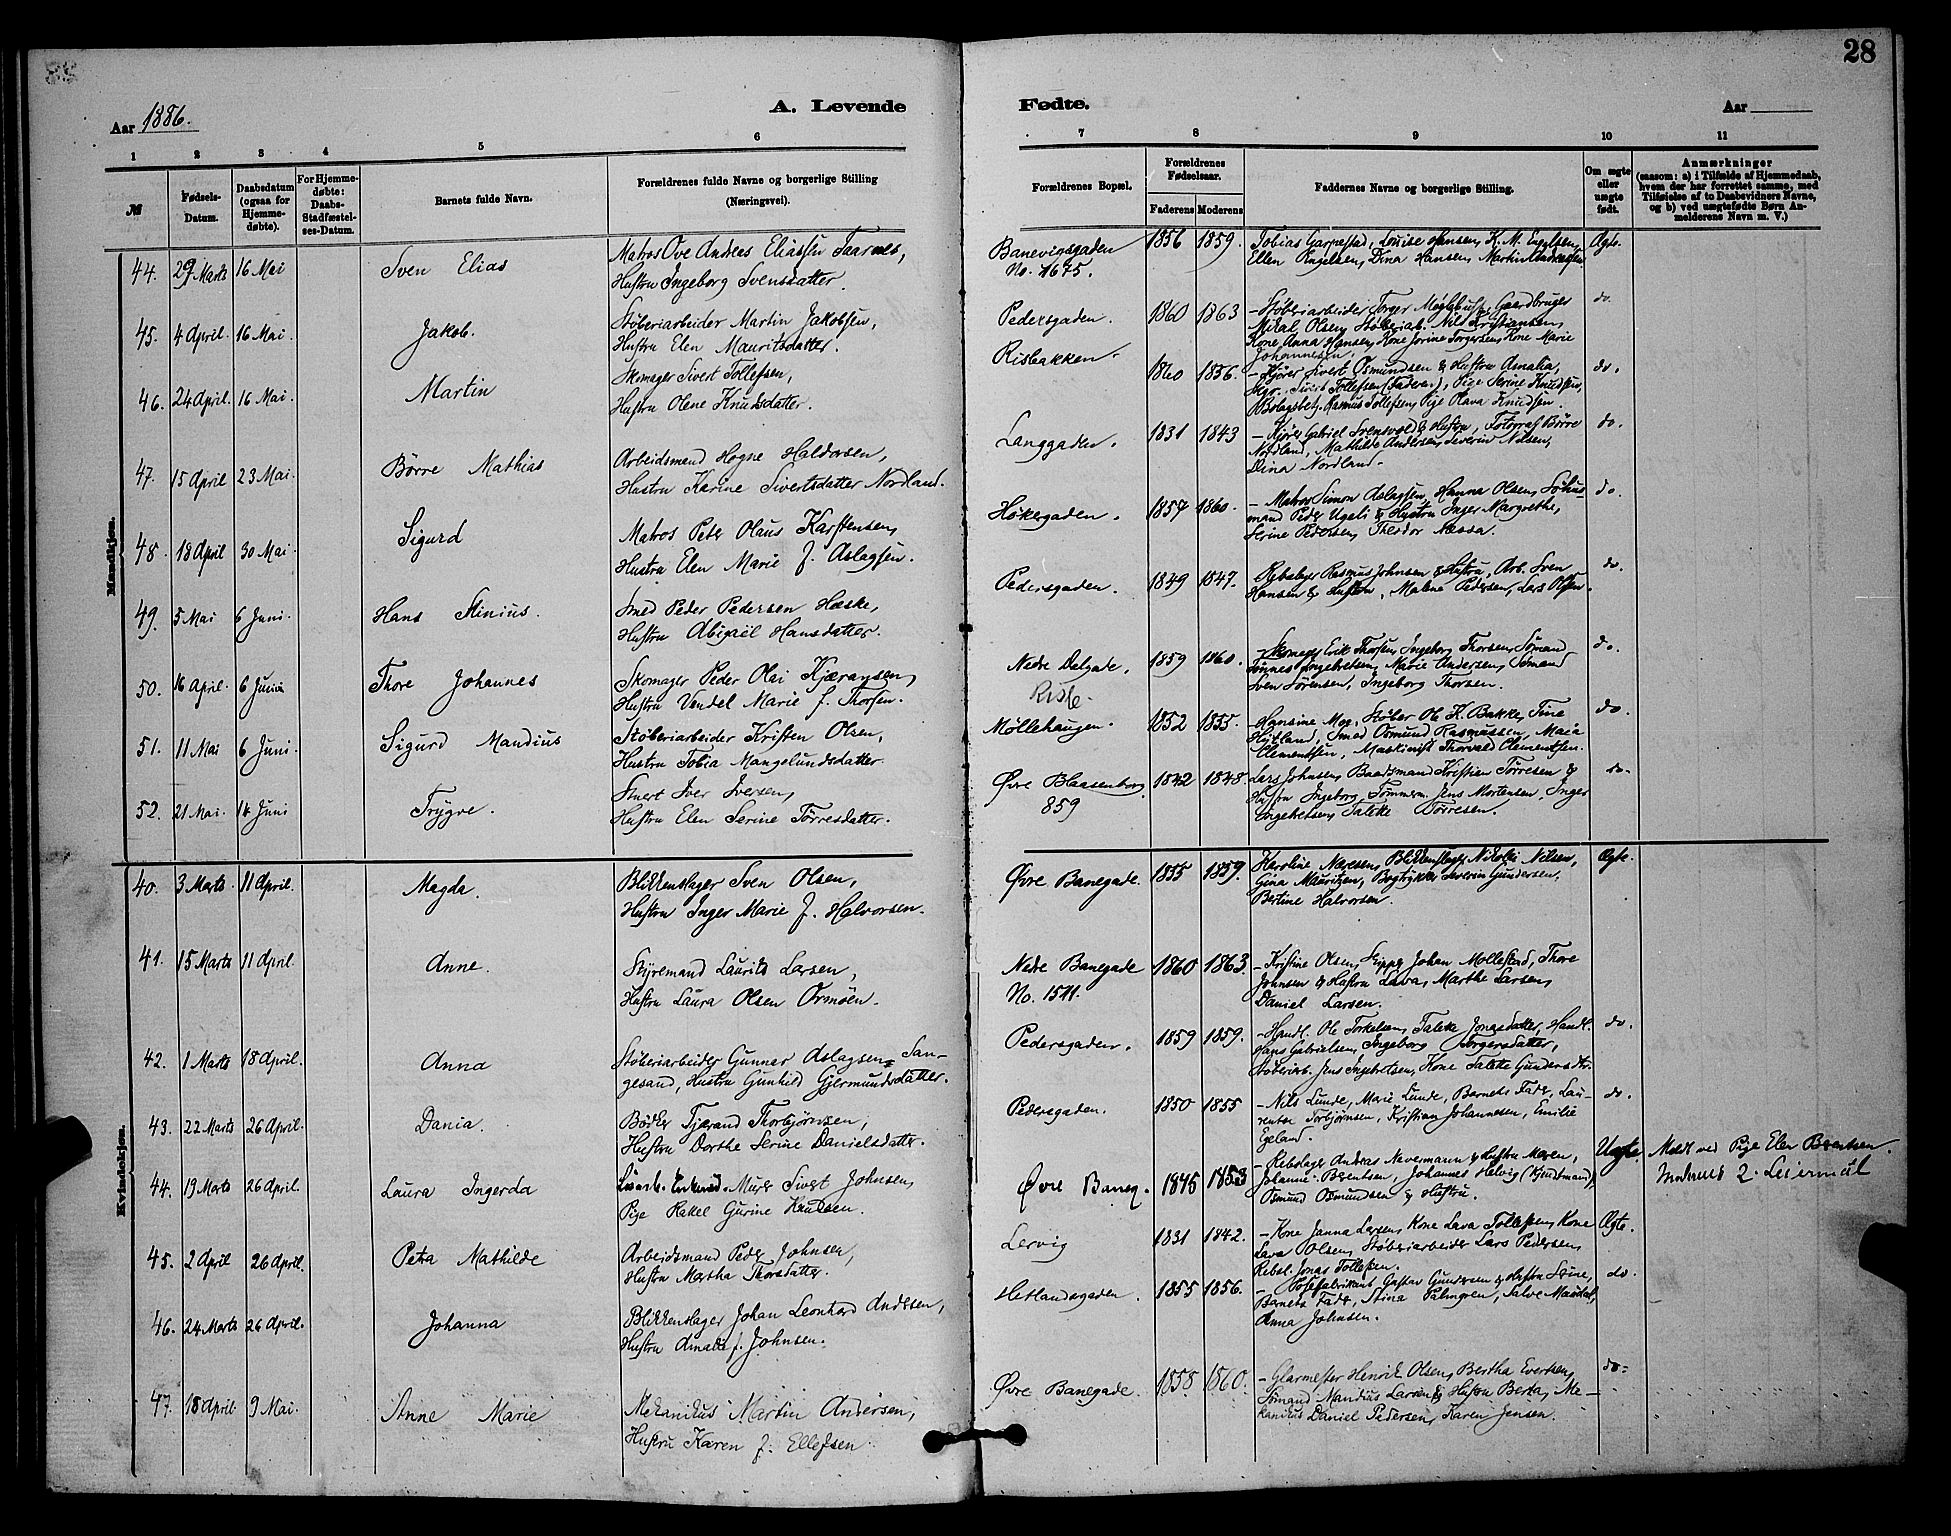 28
Aar 1886.
A. Levende
Fødte.
Aar
1 2 3 4 5 6
7 8 9 10 11
№
Fødsels-Datum.
Daabsdatum (ogsaa for Hjemmedøbte).
For Hjemmedøbte: Daabs-Stadfæstelses-Datum.
Barnets fulde Navn.
Forældrenes fulde Navne og borgerlige Stilling (Næringsvei).
Forældrenes Bopæl.
Forældrenes Fødselsaar.
Faderens Moderens
Faddernes Navne og borgerlige Stilling.
Om ægte eller uægte født.
Anmærkninger
(saasom: a) i Tilfælde af Hjemmedaab, hvem der har forrettet samme, med Tilføielse af to Daabsvidners Navne, og b) ved uægtefødte Børn Anmelderens Navn m. V.)
Mandkjøn.
44. 29 Marts 16 Mai Sven Elias Matros Ove Andreas Eliassen Taarnes,
Hustru Ingeborg Svensdatter.
Banevigsgaden No. 1675. 1856 1859. Tobias Garpestad, Louise Hansen, K. M. Engelsen,
Ellen Engelsen, Dina Hansen, Martin Andreassen Ægte.
45. 4 April. 16 Mai. Jakob. Støberiarbeider Martin Jakobsen,
Hustru Elen Mauritsdatter.
Pedersgaden. 1860 1863 - Støberiarbeider Torger Gaardbruger
Mikal Olsen, Støberiarb. Nils Kristiansen,
Kone Anna Hansen, Kone Jorine Torgersen, Kone Marie
Johannesen. do.
46. 24 April. 16 Mai. Martin Skomager Sivert Tollefsen,
Hustru Olene Knudsdatter.
Risbakken. 1860 1856. - Kjører Sivert Osmundsen & Hustru Amalia,
Skgr. Sivert Tollefsen (Faderen), Pige Serine Knudsen,
Rasmus Tollefsen, Pige Olava Knudsen. do.
47. 15 April 23 Mai. Børre Mathias Arbeidsmand Hogne Haldorsen,
Hustru Karine Sivertsdatter Nordland.
Langgaden. 1831 1843 - Kjører Gabriel & Hustru, Fotograf Børre
Nordland, Mathilde Andersen, Severin Nilsen,
Dina Nordland. do.
48. 18 April 30 Mai. Sigurd Matros Peter Olaus Karstensen,
Hustru Elen Marie f. Aslagsen.
Høkergaden. 1857 1860. - Matros Simon Aslagsen, Hanna Olsen,
mand Peder Ugeli & Hustru Inger Margrethe,
Serine Pedersen, Theodor Næssa. do.
49. 5 Mai 6 Juni. Hans Stinius. Smed Peder Pedersen Hæske,
Hustru Abigael Hansdatter.
Pedersgaden. 1849 1847. Rebslager Rasmus Johnsen & Hustru, Arb. Sven
Hansen & Hustru, Malene Pedersen, Lars Olsen. do.
50. 16 April. 6 Juni Thore Johannes Skomager Peder Olai Kjæransen,
Hustru Vendel Marie f. Thorsen.
Nedre Dalgade, 1859 1860. - Skomager Erik Thorsen, Ingeborg Thorsen, Sømand
Tønnes Ingebretsen, Marie Andersen, Sømand
Sven Sørensen, Ingeborg Thorsen. do.
51. 11 Mai 6 Juni. Sigurd Mandius Støberiarbeider Kristen Olsen,
Hustru Tobia Mangelundsdatter.
Møllehaugen. 1852 1855. - Hansine Moe, Støber Ole K. Bakke, Tine
Hjitland, Smed Osmund Rasmussen, Maia
Clementsen, Maskinist Thorvald Clementsen. do.
52. 21 Mai. 14 Juni Trygve. Stuert Iver Iversen,
Hustru Elen Serine Tørresdatter.
Øvre Blaasenborg 859 1842 1848. Lars Johnsen, Baadsmand Kristian Tørresen &
Hustru Ingeborg, Tømmerm. Jens Mortensen, Inger
Ingebretsen, Taletke Tørresen. do.
Kvindekjøn.
40. 3 Marts. 11 April. Magda. Blikkenslager Sven Olsen,
Hustru Inger Marie f. Halvorsen.
Øvre Banegade. 1855 1859. Karoline Næresen, Blikkenslager Nikolai Nilsen,
Gina Mauritzen, Bogtrykker Severin Gundersen,
Bertine Halvorsen. Ægte.
41. 15 Marts 11 April. Anne. Styremand Laurits Larsen,
Hustru Laura Olsen Ormøen.
Nedre Banegade No. 1511. 1860 1863. - Kristine Olsen, Skipper Johan Mollestad, Thore
Johnsen & Hustru Lava, Marthe Larsen,
Daniel Larsen.
42. 1 Marts 18 April. Anna Støberiarbeider Gunnar Aslagsen San-
gesand, Hustru Gunhild Gjermundsdatter.
Pedersgaden. 1859 1859. - Handl. Ole Torkelsen, Taletke Jonasdatter, Handl.
Hans Gabrielsen, Ingeborg Torgersdatter,
Støberiarb. Jens Ingebretsen, Kone Taletke Gundersdtr. do.
43. 22 Marts 26 April. Dania. Bødker Tjærand Thorbjørnsen,
Hustru Dorthe Serine Danielsdatter.
Pedersgaden. 1850 1855 - Nils Lunde, Marie Lunde, Barnets Fader, Lau-
rentse Torbjørnsen, Kristian Johannesen, Emilie
Egeland. do.
44. 19 Marts 26 April. Laura Ingerda Enkemd. Murer Sivert Johnsen,
Pige Rakel Gurine Knudsen.
Øvre Baneg. 1845 1853 - Rebslager Andreas Nevermann & Hustru Maren,
Johanne Berentsen, Johannes Helvig (Kjøbmand),
Osmund Osmundsen & Hustru. Uægte. Meldt ved Pige Elen Berentsen.
Moderens 2. Leiermaal
45. 2 April 26 April. Petra Mathilde Arbeidsmand Peder Johnsen,
Hustru Martha Thorsdatter.
Lervig 1831 1842. - Kone Janna Larsen, Kone Lava Tollefsen, Kone
Lava Olsen, Støberiarbeider Lars Pedersen,
Rebsl. Jonas Tollefsen. Ægte.
46. 24 Marts 26 April. Johanna Blikkenslager Johan Leonhard Andersen,
Hustru Amalie f. Johnsen.
Hetlandsgaden. 1855 1856. - Gustav Gundersen & Hustru Serine,
Barnets Fader, Stina Palmgren, Salve Maudal,
Anna Johnsen. do.
47. 18 April. 9 Mai. Anne Marie Mekanikus Martin Andersen,
Hustru Karen f. Ellefsen.
Øvre Banegade. 1858 1860. - Glarmester Henrik Olsen, Bertha Evertsen,
Sømand Mandius Larsen & Hustru Berta, Me-
kanikus Daniel Pedersen, Karen Jensen. do.